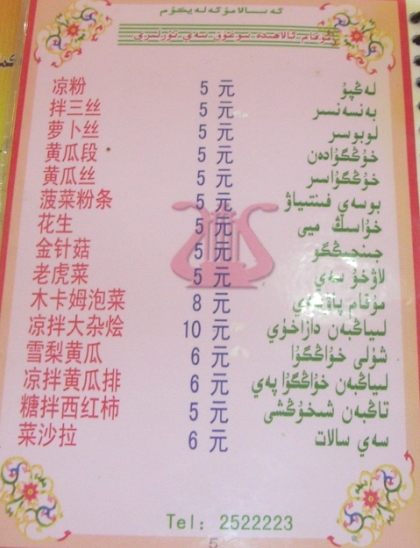 凉粉 5 元 لەڭپۇڭ
拌三丝 5 元 بەنسەنسىر
萝卜丝 5 元 لوبوسىر
黄瓜段 5 元 خۇڭگۇادەن
黄瓜丝 5 元 خۇڭگۇاسىر
菠菜粉条 5 元 بوسەي فىنتىياۋ
花生 5 元 خۇاسىڭ مىي
金针菇 5 元
老虎菜 5 元 لاۋخۇ سەي
木卡姆泡菜 8 元 مۇقام
凉拌大杂烩 10 元 لىياڭبەن دازاخۇي
雪梨黄瓜 6 元 شۆلى خۇاڭگۇا
凉拌黄瓜排 6 元 لىياڭبەن خۇاڭگۇا پەي
糖拌西红柿 5 元 تاڭبەن شىخۇڭشى
菜沙拉 6 元 سەي سالات
Tel: 2522223
5